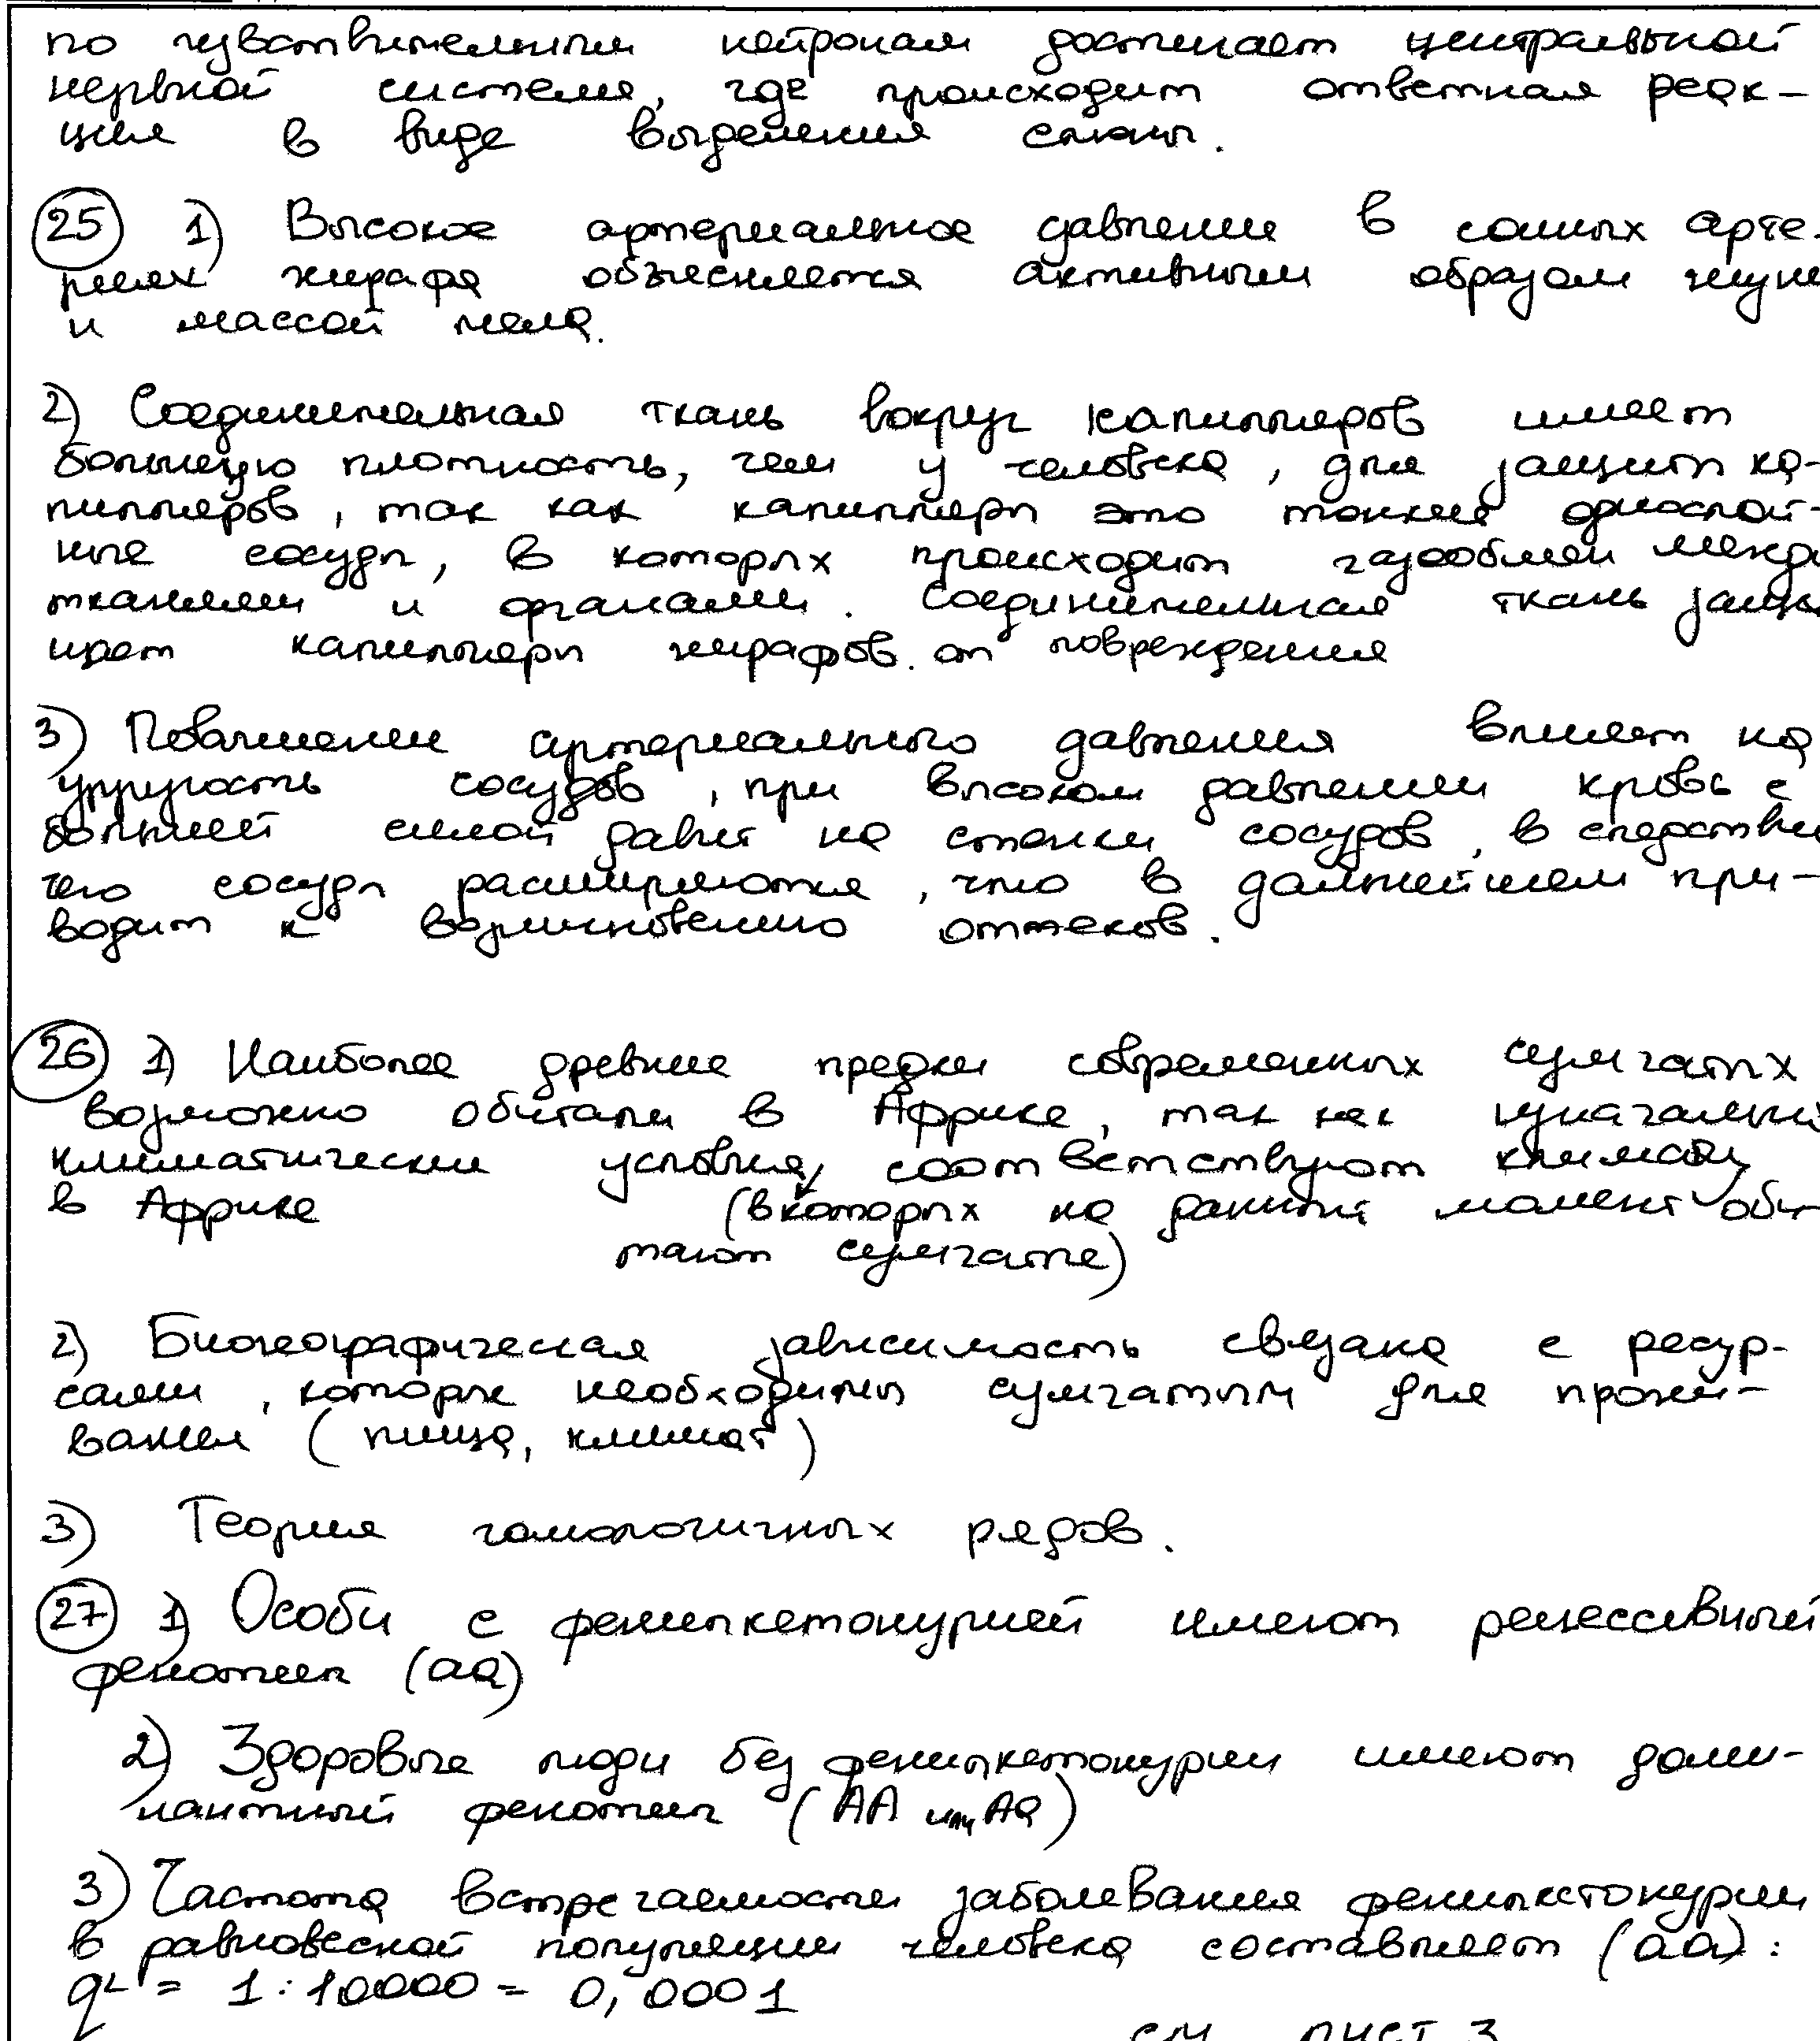 по чувствительным нейронам достигает центральной
нервной системе, где происходит ответная реак-
ция в виде выделения слюны.
25 1) Высокое артериальное давление в сонных арте-
риях жирафа объясняется активным образом жизни
и массой тела.
2) Соединительная ткань вокруг капилляров имеет
большую плотность, чем у человека, для защиты ка-
пилляров, так как капилляры это тонкие однослой-
ные сосуды, в которых происходит газообмен между
тканями и органами. Соединительная ткань защи-
щает капилляры жирафов. от повреждения
3) Повышение артериального давления влияет на
упругость сосудов, при высоком давлении кровь с
большей силой давит на стенки сосудов, в следствии
чего сосуды расширяются, что в дальнейшем при-
водит к возникновению оттеков.
26 1) Наиболее древние предки современных сумчатых
возможно обитали в Африке, так как изначальные
климатические условия, соответствуют климату
в Африке (в которых на данный момент оби-
тают сумчатые)
2) Биогеографическая зависимость связана с ресур-
сами, которые необходимы сумчатым для прожи-
вания (пища, климат)
3) Теория гомологичных рядов.
27 1) Особи с фенилкетонурией имеют рецессивный
фенотип (aa)
2) Здоровые люди без фенилкетонурии имеют доми-
нантный фенотип (AA или Aa)
3) Частота встречаемости заболевания фенилкетонурии
в равновесной популяции человека составляет (aa):
q² = 1:10000 = 0,0001
см лист 3